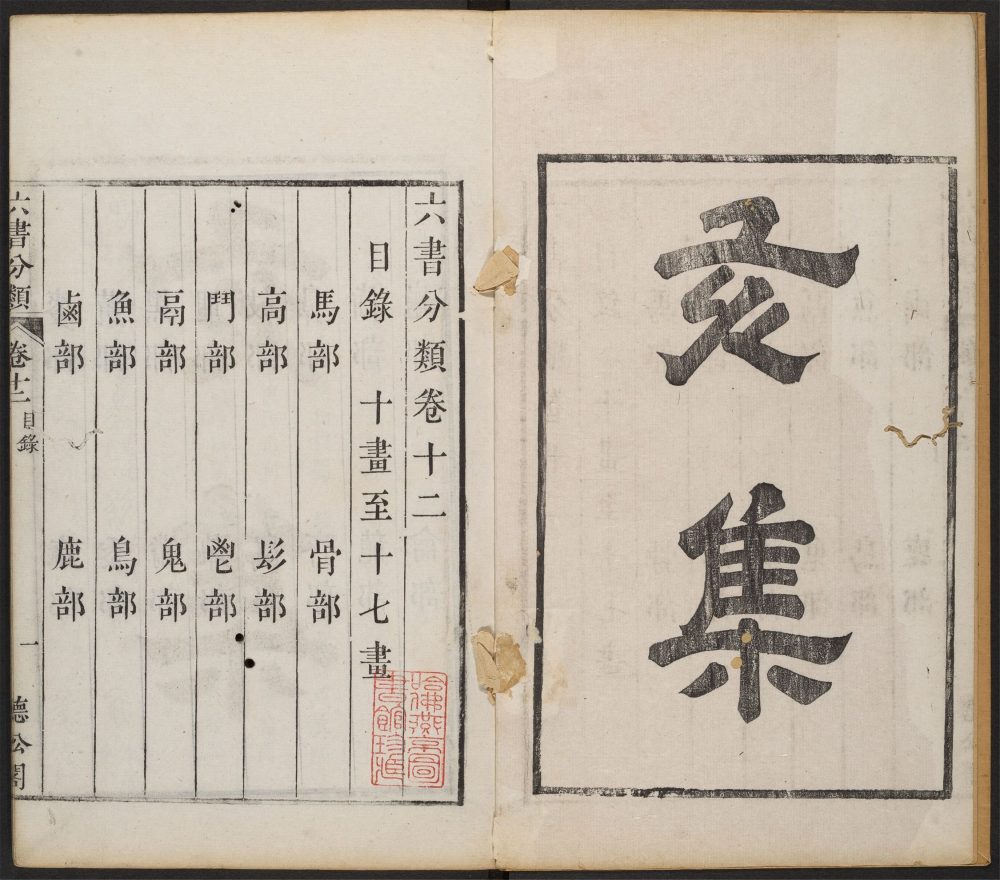 亥集
六書分類卷十二
目錄 十畫至十七畫
馬部 骨部
高部 髟部
鬥部 鬯部
鬲部 鬼部
魚部 鳥部
鹵部 鹿部
六書分類 卷十二 目錄 一 德公閣
哈佛燕京圖
書館珍藏